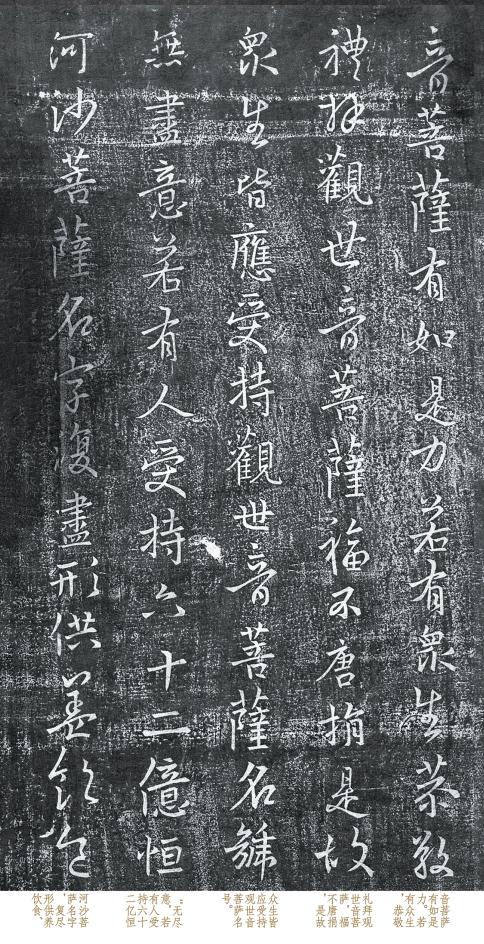 音菩薩有如是力若有衆生恭敬
禮拜觀世音菩薩福不唐捐是故
衆生皆應受持觀世音菩薩名號
無盡意若有人受持六十二億恒
河沙菩薩名字復盡形供養飲食
音菩萨
有如是
力。若
有众生
,恭敬
礼拜观
世音菩
萨,福
不唐捐
,是故
众生皆
应受持
观世音
菩萨名
号。
“无尽
意,若
有人受
持六十
二亿恒
河沙菩
萨名字
,复尽
形供养
饮食、